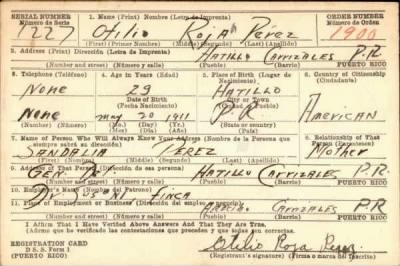 SERIAL NUMBER 1. Name (Print) Nombre (Letra de Imprenta) ORDER NUMBER
Número de Serie Número de Orden
1227 Otilio Roja Pérez 1900
(First) (Primer Nombre) (Middle) (Segundo) (Last) (Apellido)
2. Address (Print) Dirección (Letra de Imprenta)
HATILLO CARRIZALES P.R.
(Number and Street) (Número y Calle) (Town) (Pueblo) (Barrio) PUERTO RICO
3. Telephone (Teléfono) 4. Age in Years (Edad) 5. Place of Birth (Lugar de Nacimiento) 6. Country of Citizenship (Ciudadanía)
None 29 HATILLO
Date of Birth (Fecha Nacimiento) City or Town (Pueblo)
None May 20 1911 P.R. American
(Mo.) (Day) (Yr.) (State or country)
(Mes) (Día) (Año) (Estado o país)
7. Name of Person Who Will Always Know Your Address (Nombre de la Persona que siempre sabrá su dirección) 8. Relationship of That Person
SANDALIA PÉREZ Mother
(First) (Middle) (Segundo) (Last) (Apellido)
9. Address of That Person (Dirección de esa persona)
HATILLO CARRIZALES P.R.
(Number and Street) (Número y Calle) (Town) (Pueblo) (Barrio) PUERTO RICO
10. Employer's Name (Nombre del Patrono)
11. Place of Employment or Business (Dirección del empleo) CARRIZALES P.R
(Number and Street) (Número y Calle) (Town) (Pueblo) (Barrio) PUERTO RICO
I Affirm That I Have Verified Above Answers and That They Are True.
(Afirmo que he verificado las contestaciones que preceden y que éstas son correctas.)
REGISTRATION CARD Otilio Roja Perez
D. S. S. Form 1
(PUERTO RICO) (Registrant's signature) (Firma o marca del inscrito)